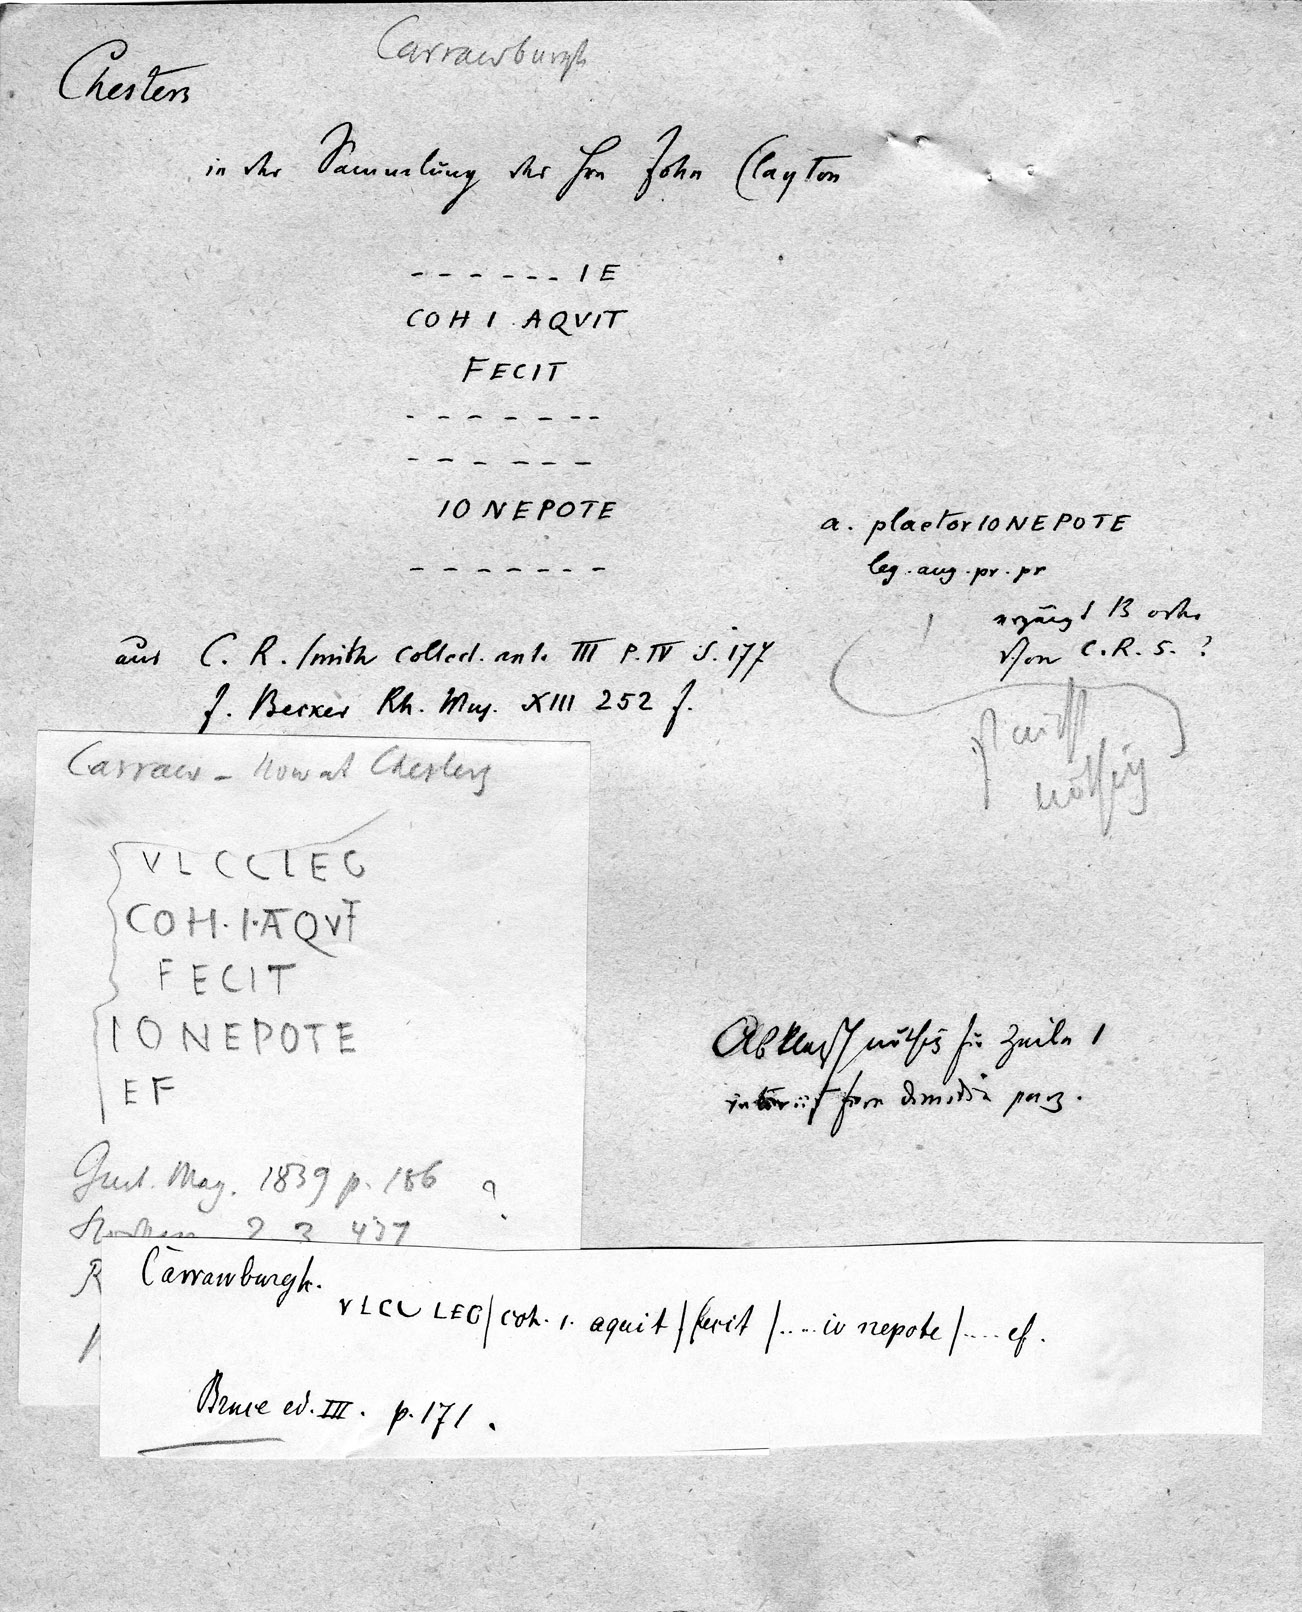 Carrawburgh
Chesters
in der Sammlung des Hrn John Clayton
- - - - - - I E
COH I AQVIT
FECIT
- - - - - - -
- - - - - -
IO NEPOTE
- - - - - - -
a. plaetorIONEPOTE
leg. aug. pr. pr
ergänzt B oder
von C. R. S. ?
ist nicht
nöthig
aus C. R. Smith collect. ant. III P. IV S. 177
f. Becker Rh. Mus. XIII 252 f.
Carraw - now at Chesters
VLCCLEG
COH. I. AQVT
FECIT
IO NEPOTE
EF
Gent. Mag. 1839 p. 186 ?
2 3 437
Abklatsch nöthig für Zeile 1
Carrawburgh.
VLCC LEG / coh. 1. aquit / fecit / .... io nepote / .... ef.
Bruce ed. III. p. 171.